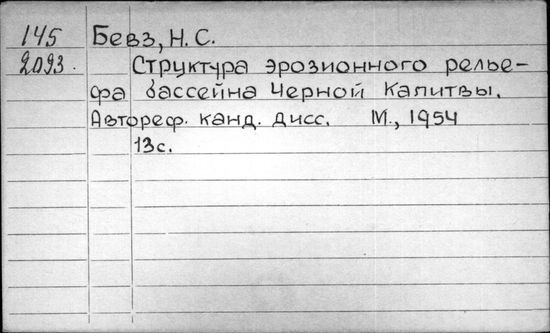 145 Бевз, Н. С.
2093. Структура эрозионного релье-
фа бассейна Черной Калитвы.
Автореф. канд. дисс. М., 1954
13с.